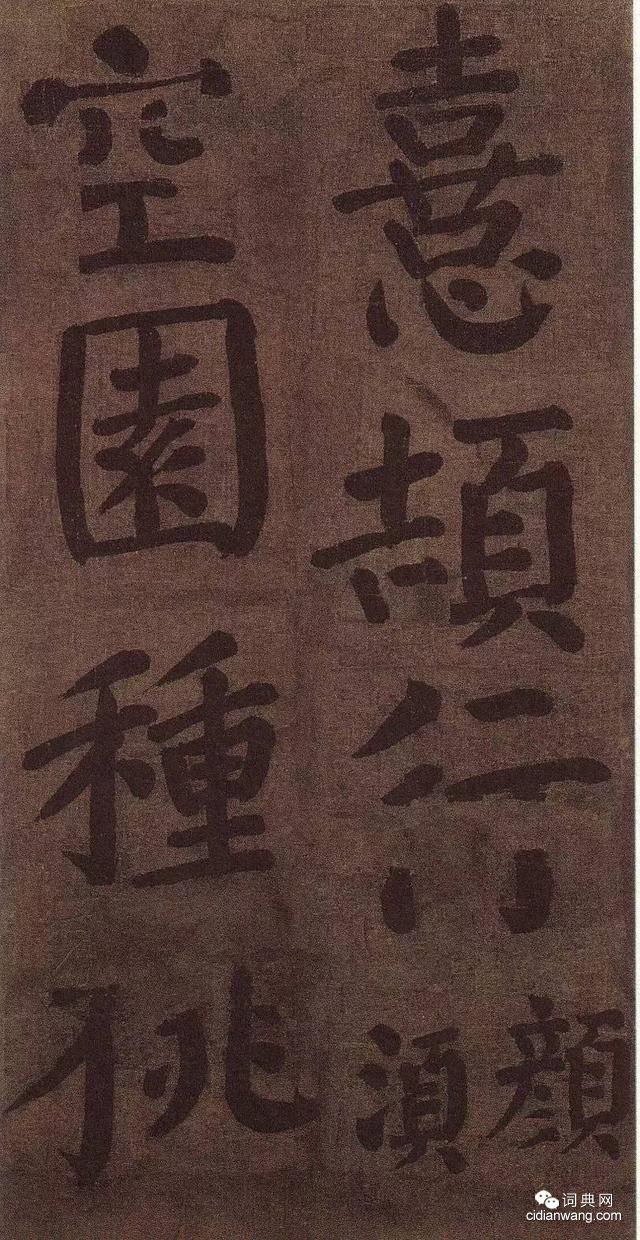 憙頡行
顏湏
空園種桃
词典网
cidianwang.com